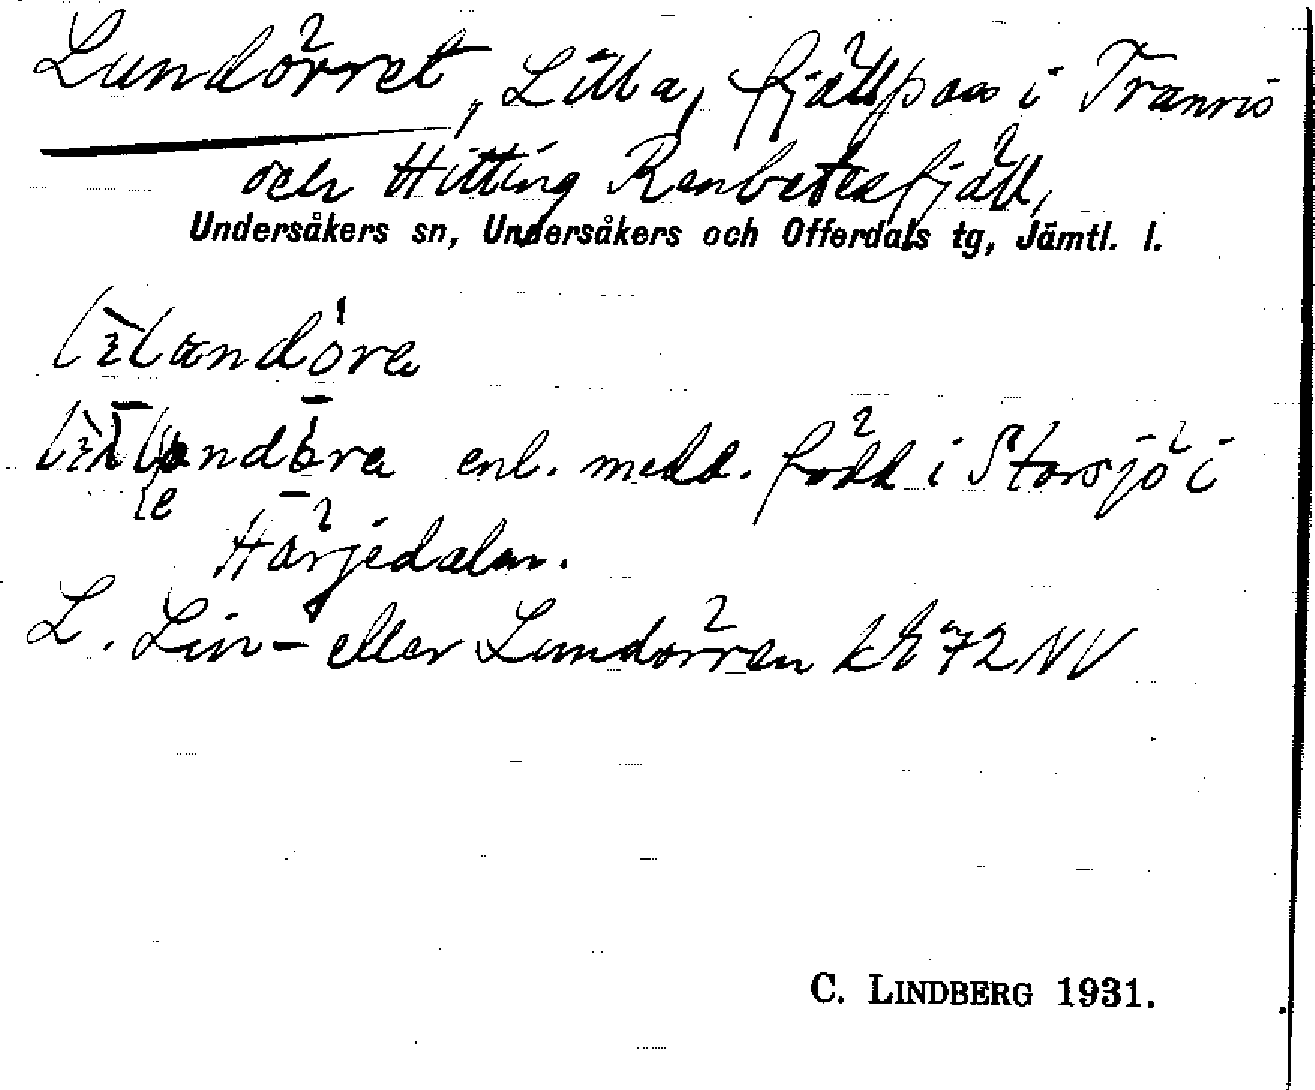 Lundörret, Lilla, fjällpass i Tranris
och Hitting Renbetesfjäll,
Undersåkers sn, Undersåkers och Offerdals tg, Jämtl. l.
enl. medd. född i Storsjö i
Härjedalen.
L. Lin- eller Lundörren kbl 72 NV
C. LINDBERG 1931.